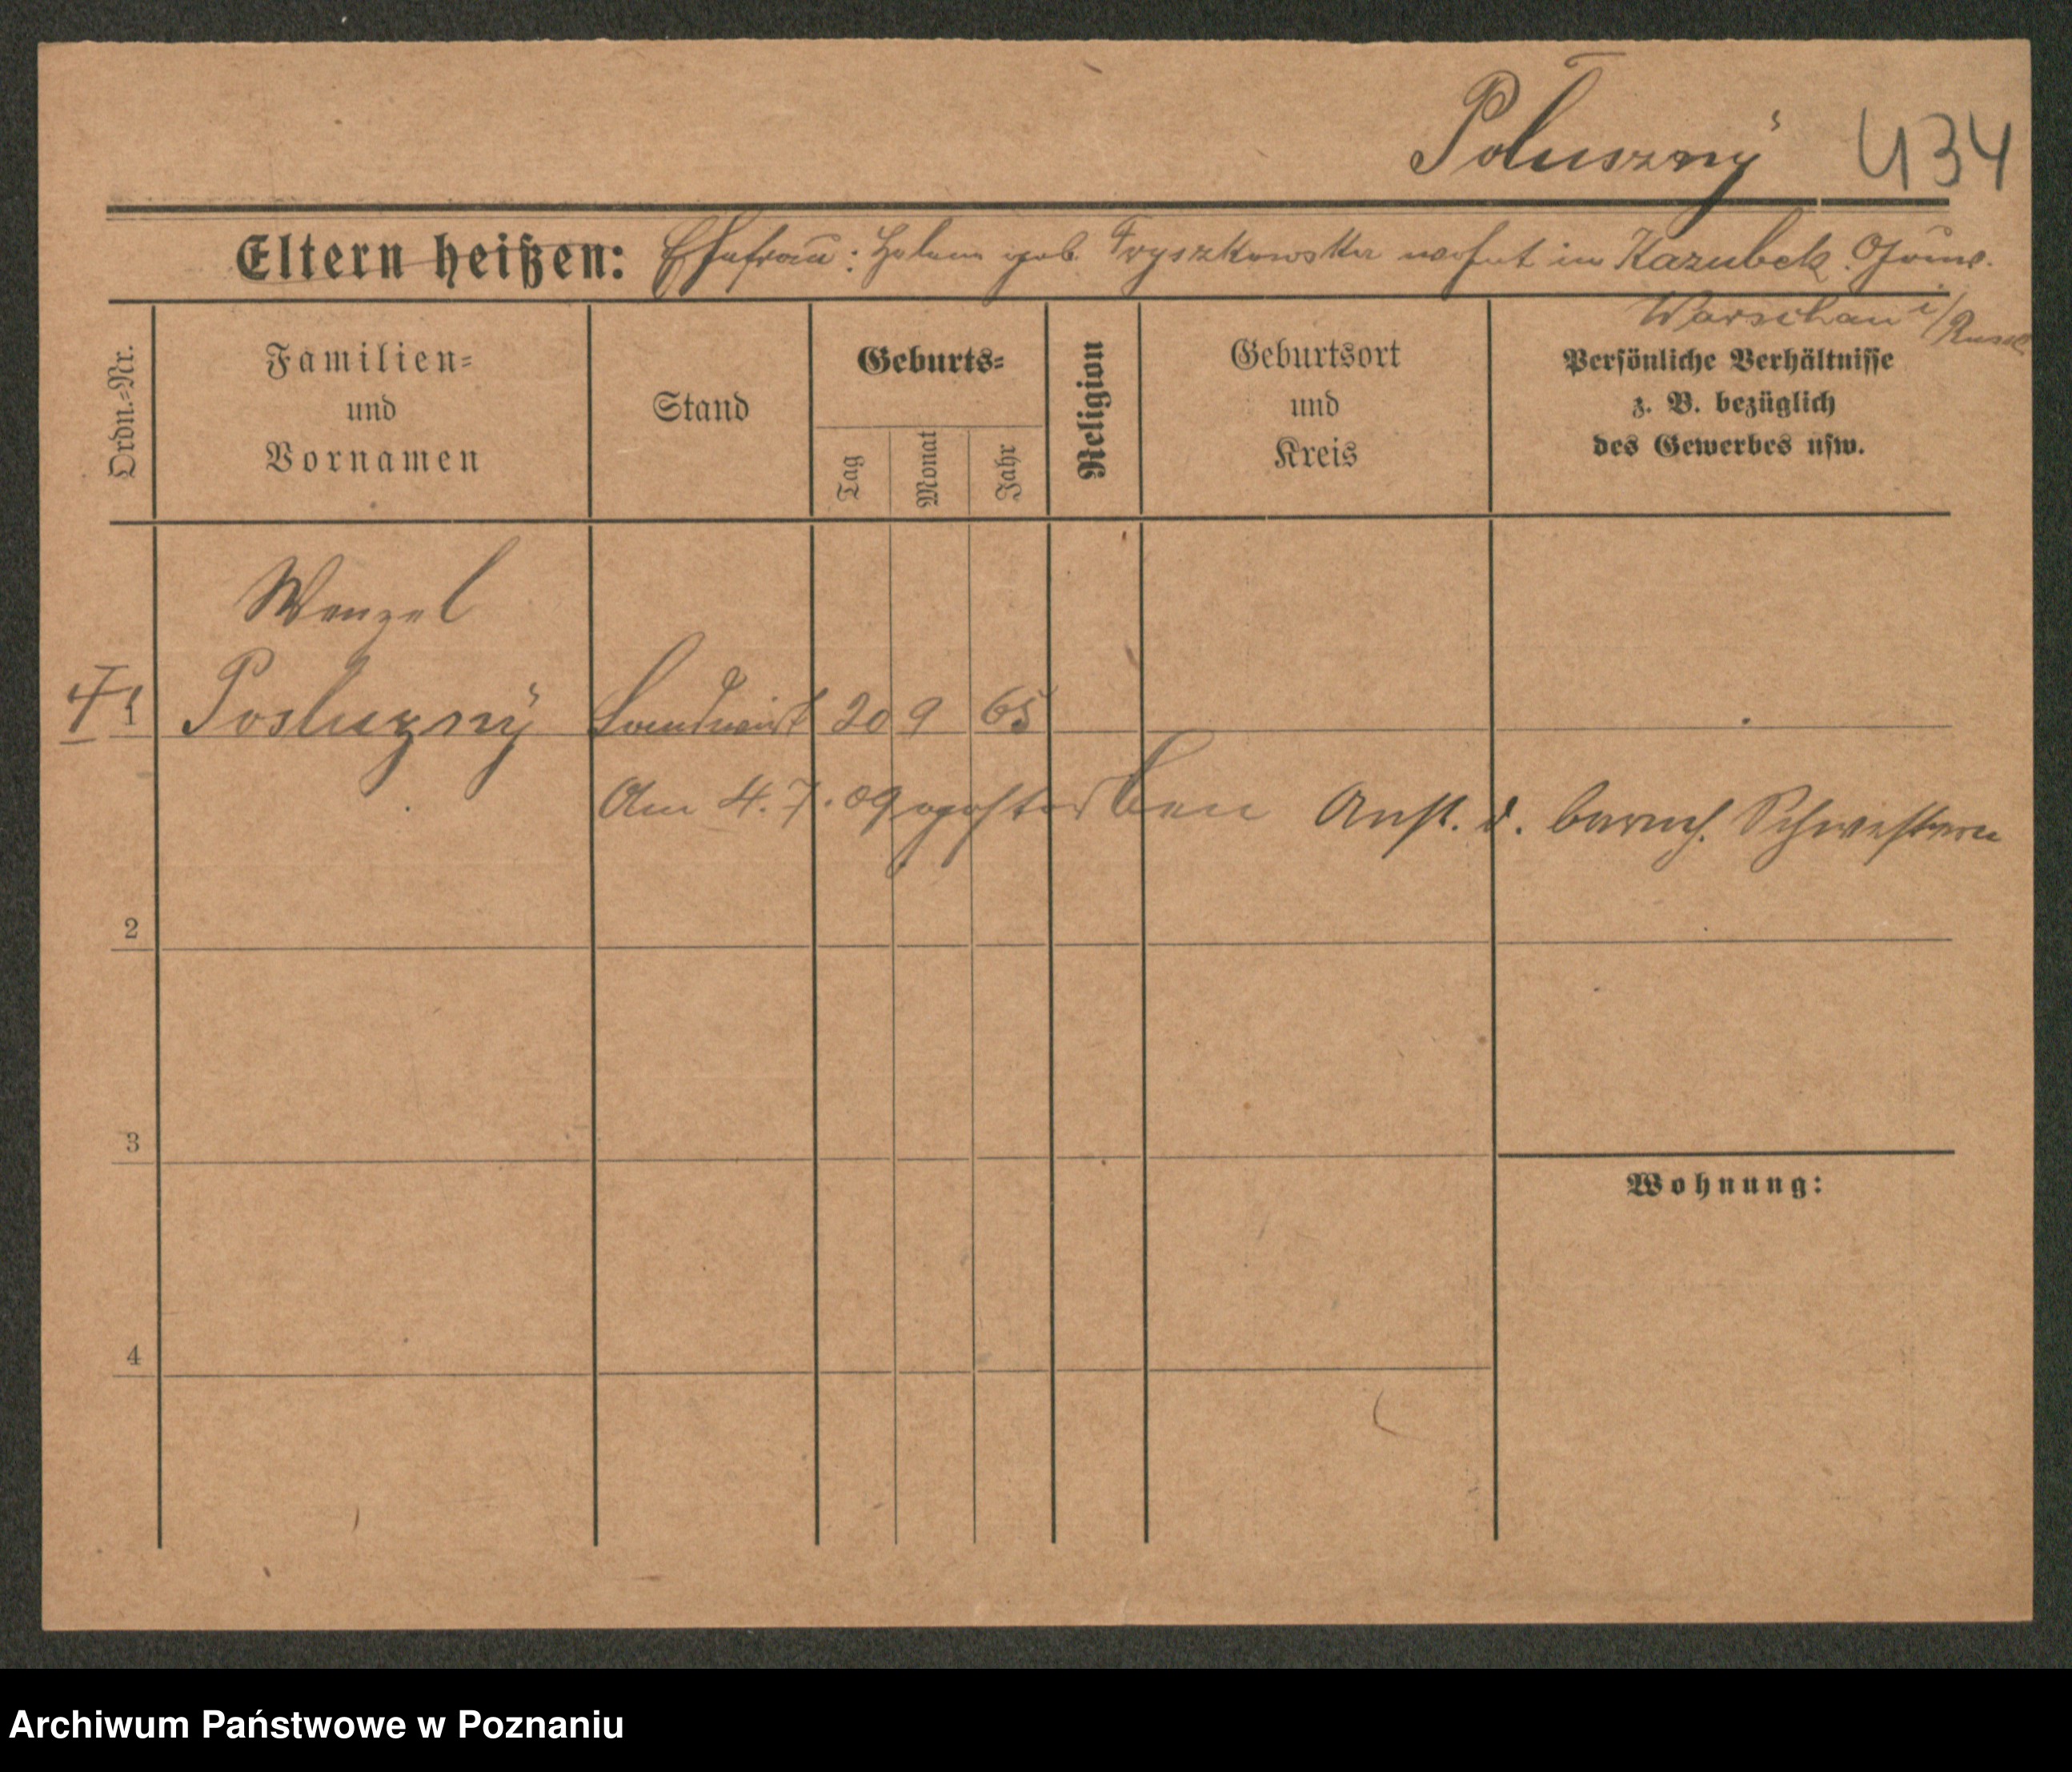 Połuszny 434
Eltern heißen: Ehefrau: Helene geb. Fryszkowska wohnt in Kazubek. Gouv.
Warschau i/Russl
Ordn.=Nr.
Familien=
und
Vornamen
Stand
Geburts=
Tag
Monat
Jahr
Religion
Geburtsort
und
Kreis
Persönliche Verhältnisse
z. B. bezüglich
des Gewerbes usw.
Wenzel
1 Posluzny Landwirt 20 9 65
Am 4. 7. 09 gestorben Anst. d. barmh. Schwestern
2
3
Wohnung:
4
Archiwum Państwowe w Poznaniu